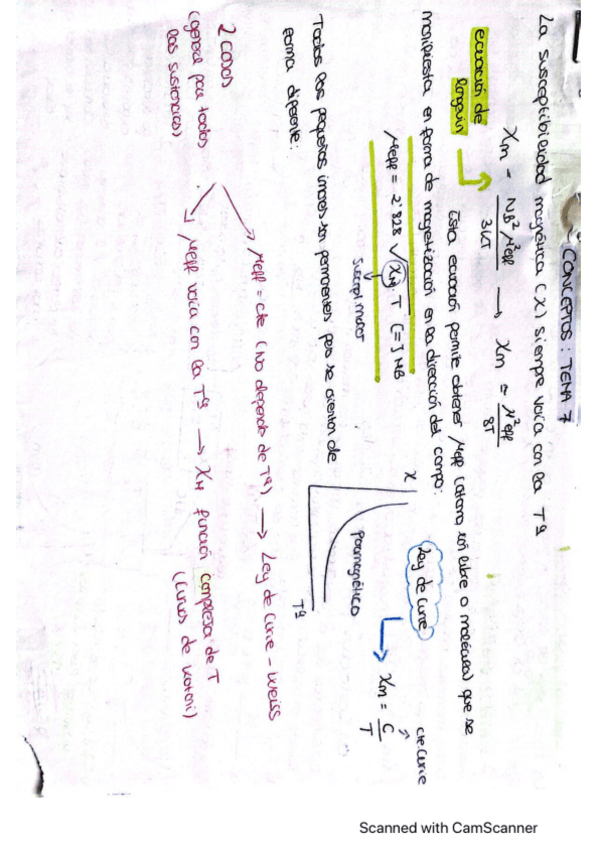 CONCEPTOS: TEMA 7
La susceptibilidad magnética (χ) siempre varía con la Tª
ecuación de
Langevin
χm = NB²μ²eff / 3KT → χm = μ²eff / 8T
Esta ecuación permite obtener μeff (átomo, ión libre o molécula) que se
manifiesta en forma de magnetización en la dirección del campo:
μeff = 2'828 √χM · T (=) MB
suscept molar
χ
Paramagnético
Tª
Ley de Curie
χm = C / T
cte Curie
Todos los pequeños imanes son permanentes pero se orientan de
forma diferente:
2 casos
(general para todas
las sustancias)
μeff = cte (No depende de Tª) → Ley de Curie - Weiss
μeff varía con la Tª → χM función compleja de T
(Curvas de Kotani)
Scanned with CamScanner